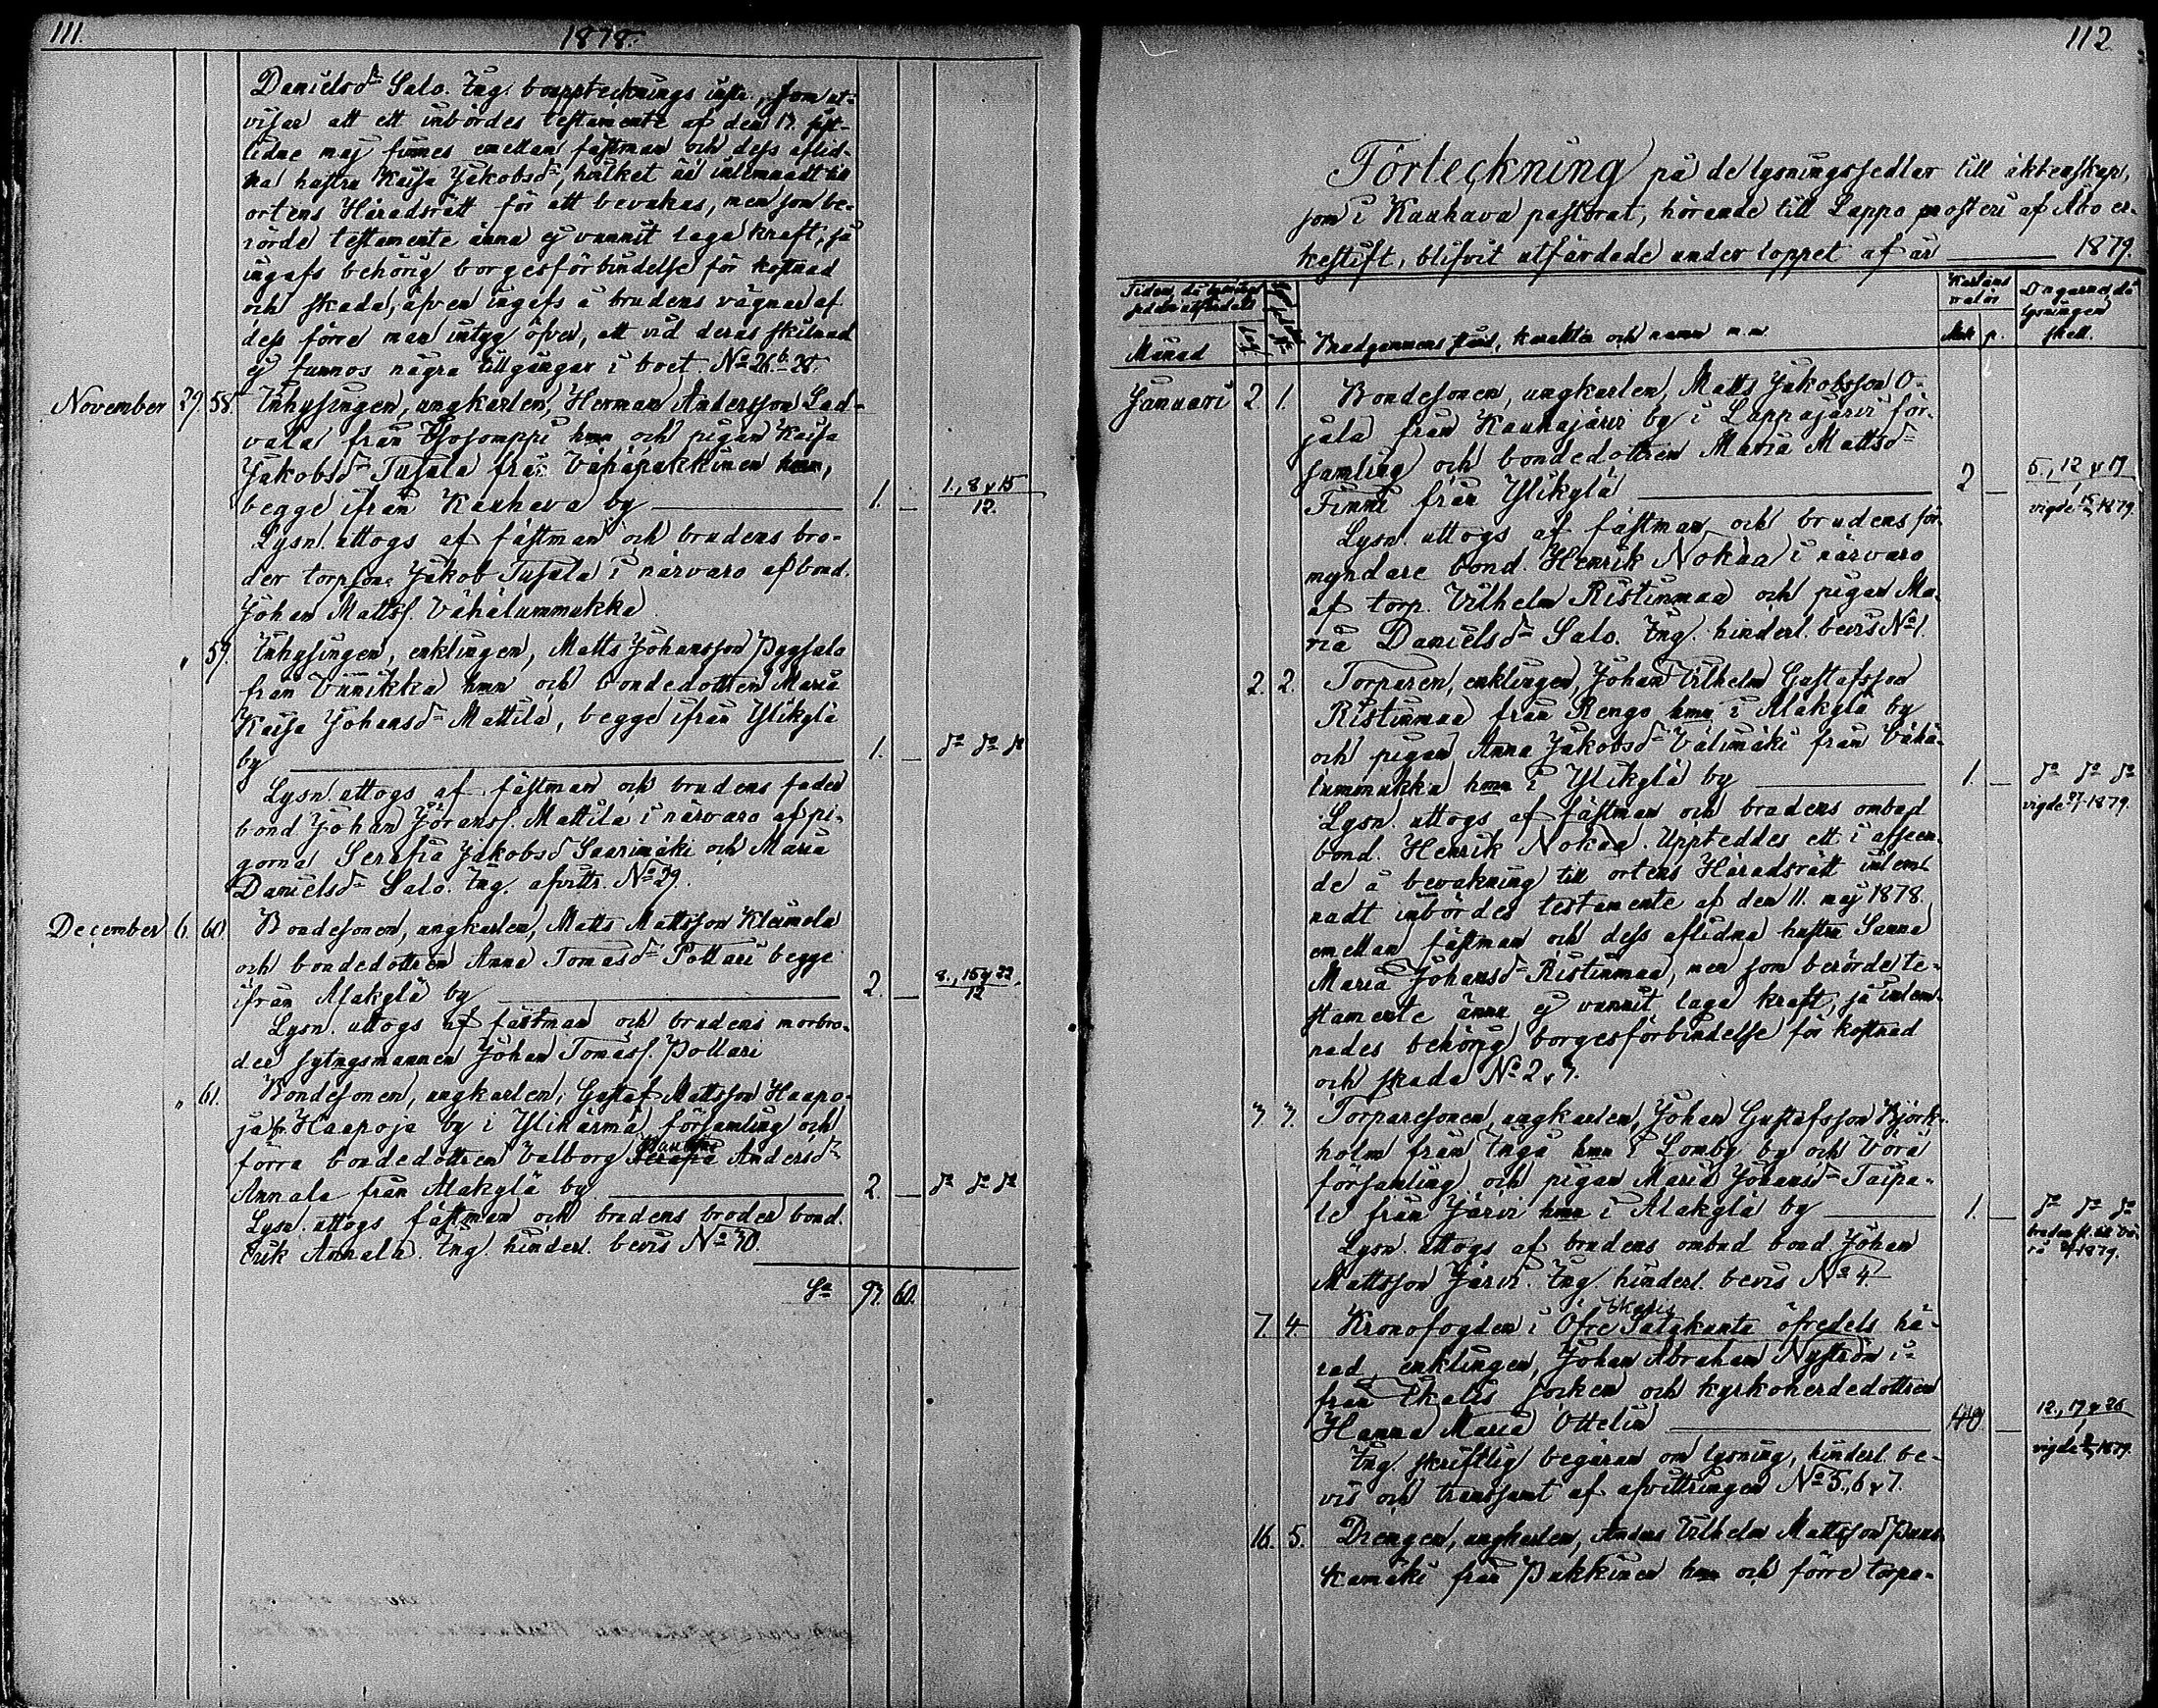 111. 1878.
Danielsdr Salo. Ing. bouppteckningsinstr., som ut-
visar att ett inbördes testamente af den 17. sist-
lidne maj finnes emellan fästman och dess aflid-
na hustru Kaisa Jakobsdr, hvilket är inlemnadt till
ortens Häradsrätt för att bevakas, men som be-
rörde testamente ännu ej vunnit laga kraft, så
ingafs behörig borgesförbindelse för kostnad
och skada, äfven ingafs å brudens vägnar af
dess förre man intyg öfver, att vid deras skilnad
ej funnos några tillgångar i boet. No 26.b-28.
November 29. 58. Inhysingen, ungkarlen, Herman Andersson Lad-
vala från Isosomppi hmn och pigan Kaisa
Jakobsdr Tusala från Vähäpukkinen hmn,
begge ifrån Kauhava by 1. — 1., 8 & 15
12.
Lysn. uttogs af fästman och brudens bro-
der torpson. Jakob Tusala i närvaro af bond.
Johan Matts. Vähälummukka.
" 59. Inhysingen, enklingen, Matts Johansson Pyysalo
från Vinnikka hmn och bondedottren Maria
Kaisa Johansdr Mattila, begge ifrån Ylikylä
by 1. — do do do
Lysn. uttogs af fästman och brudens fader
bond. Johan Göranss. Mattila i närvaro af pi-
gorna Serafia Jakobsd Saarimäki och Maria
Danielsdr Salo. Ing. afvittr. No 29.
December 6. 60. Bondesonen, ungkarlen, Matts Mattsson Kleimola
och bondedottren Anna Tomasdr Pottari begge
ifrån Alakylä by 2. — 8., 15 & 22.
12
Lysn. uttogs af fästman och brudens morbro-
der sytngsmannen Johan Tomass. Pollari
" 61. Bondesonen, ungkarlen, Gustaf Mattsson Haapo-
ja fr. Haapoja by i Ylihärmä församling och
förra bondedottren Valborg Andersdr
Annala från Alakylä by 2. — do do do
Lysn. uttogs fästman och brudens broder bond.
Erik Annala. Ing. hinderl. bevis No 30.
Sa 93. 60.
112.
Förteckning på de lysningssedlar till äktenskap,
som i Kauhava pastorat, hörande till Lappo prosteri af Åbo er-
kestift, blifvit utfärdade under loppet af år 1879.
Tiden, då lysnings
sedeln utfärdats Kartans
valör Dagarne, då
lysningen
skett.
Månad Brudgummens stånd, karakter och namn m.m. Mark p.
Januari 2. 1. Bondesonen, ungkarlen, Matts Jakobsson O-
jala från Kauhajärvi by i Lappajärvi för-
samling och bondedottren Maria Mattsdr
Finni från Ylikylä 2 — 5., 12 & 19
1
vigde 1879.
Lysn. uttogs af fästman och brudens för-
myndare bond. Henrik Nokåa i närvaro
af torp. Vilhelm Ristinmaa och pigan Ma-
ria Danielsdr Salo. Ing. hinderl. bevis No 1.
2. 2. Torparen, enklingen, Johan Vilhelm Gustafsson
Ristinmaa från Rengo hmn i Alakylä by
och pigan Anna Jakobsdr Välimäki från Vähä-
lummukka hmn i Ylikylä by 1. — do do do
vigde 1879.
Lysn. uttogs af fästman och brudens ombud
bond. Henrik Nokåa. Uppteddes ett i afseen-
de å bevakning till ortens Häradsrätt inlem-
nadt inbördes testamente af den 11. maj 1878.
emellan fästman och dess aflidna hustru Sanna
Maria Johansdr Ristinmaa, men som berörde te-
stamente ännu ej vunnit laga kraft, så inlem-
nades behörig borgesförbindelse för kostnad
och skada No 2 & 3.
3 3. Torparesonen, ungkarlen, Johan Gustafsson Björk-
holm från Inga hmn i Lomby by och Vörå
församling och pigan Maria Johansdr Taipa-
le från Järvi hmn i Alakylä by 1. — do do do
bruden fl. till Vö-
rå 1879.
Lysn. uttogs af brudens ombud bond. Johan
Mattsson Järvi. Ing. hinderl. bevis No 4
7. 4. Kronofogden i Öfre Satakunta öfredels hä-
rad, enklingen, Johan Abraham Nyström i-
från Ikalis socken och kyrkoherdedottren
Hanna Maria Ottelin 40 — 12., 19 & 26
1
vigde 1879.
Ing. skriftlig begäran om lysning, hinderl. be-
vis och transsumt af afvittringen No 5., 6 & 7.
16. 5. Drengen, ungkarlen, Anders Vilhelm Mattsson Puus-
kamäki från Pukkinen hmn och förre torpa-